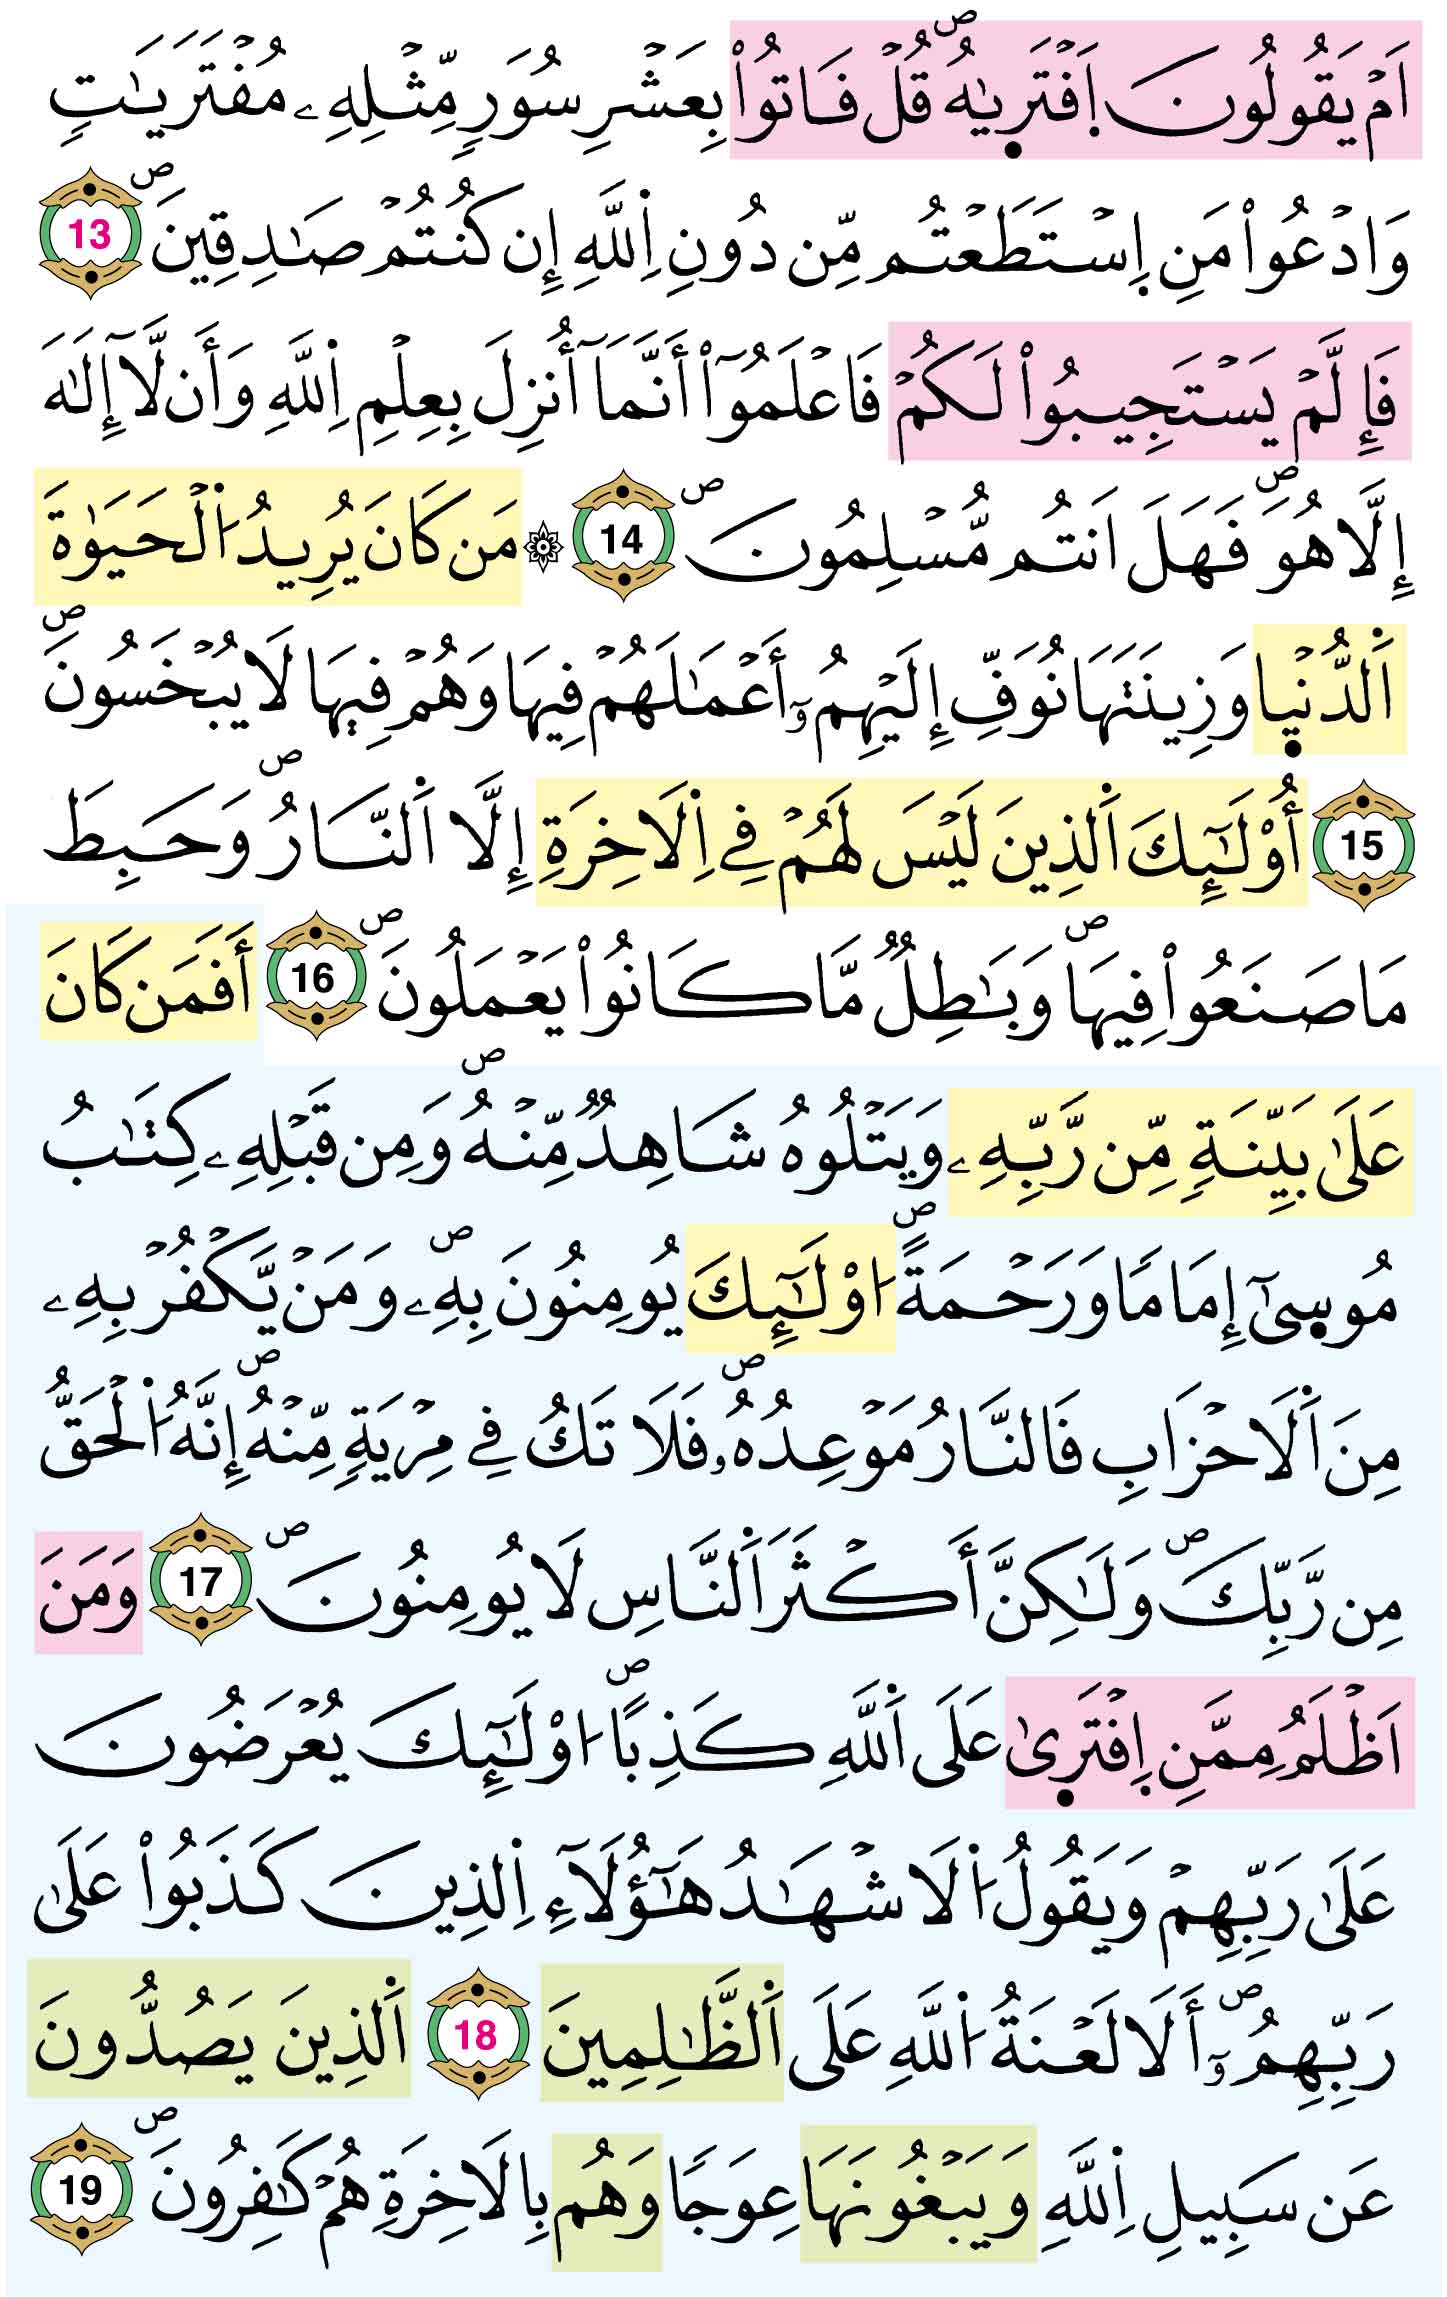 اَمْ يَقُولُونَ اَ۪فْتَر۪يٰهُۖ قُلْ فَاتُواْ بِعَشْرِ سُوَرٍ مِّثْلِهِۦ مُفْتَرَيَٰتٍ
وَادْعُواْ مَنِ اِ۪سْتَطَعْتُم مِّن دُونِ اِ۬للَّهِ إِن كُنتُمْ صَٰدِقِينَۖ 13
فَإِلَّمْ يَسْتَجِيبُواْ لَكُمْ فَاعْلَمُوٓاْ أَنَّمَآ أُنزِلَ بِعِلْمِ اِ۬للَّهِ وَأَن لَّآ إِلَٰهَ
إِلَّا هُوَۖ فَهَلَ اَنتُم مُّسْلِمُونَۖ 14 ۞ مَن كَانَ يُرِيدُ اُ۬لْحَيَوٰةَ
اَ۬لدُّنْي۪ا وَزِينَتَهَا نُوَفِّ إِلَيْهِمُۥٓ أَعْمَٰلَهُمْ فِيهَا وَهُمْ فِيهَا لَا يُبْخَسُونَۖ
15 أُوْلَٰٓئِكَ اَ۬لذِينَ لَيْسَ لَهُمْ فِے اِ۬لَاخِرَةِ إِلَّا اَ۬لنَّارُۖ وَحَبِطَ
مَا صَنَعُواْ فِيهَاۖ وَبَٰطِلٌ مَّا كَانُواْ يَعْمَلُونَۖ 16 أَفَمَن كَانَ
عَلَىٰ بَيِّنَةٍ مِّن رَّبِّهِۦ وَيَتْلُوهُ شَاهِدٌ مِّنْهُۖ وَمِن قَبْلِهِۦ كِتَٰبُ
مُوس۪ىٰٓ إِمَامًا وَرَحْمَةًۖ اُوْلَٰٓئِكَ يُومِنُونَ بِهِۦۖ وَمَنْ يَّكْفُرْ بِهِۦ
مِنَ اَ۬لَاحْزَابِ فَالنَّارُ مَوْعِدُهُۥۖ فَلَا تَكُ فِے مِرْيَةٍ مِّنْهُۖ إِنَّهُ اُ۬لْحَقُّ
مِن رَّبِّكَۖ وَلَٰكِنَّ أَكْثَرَ اَ۬لنَّاسِ لَا يُومِنُونَۖ 17 وَمَنَ
اَظْلَمُ مِمَّنِ اِ۪فْتَر۪ىٰ عَلَى اَ۬للَّهِ كَذِبًاۖ اُوْلَٰٓئِكَ يُعْرَضُونَ
عَلَىٰ رَبِّهِمْ وَيَقُولُ اُ۬لَاشْهَٰدُ هَٰٓؤُلَآءِ اِ۬لذِينَ كَذَبُواْ عَلَىٰ
رَبِّهِمُۥٓۖ أَلَا لَعْنَةُ اُ۬للَّهِ عَلَى اَ۬لظَّٰلِمِينَ 18 اَ۬لذِينَ يَصُدُّونَ
عَن سَبِيلِ اِ۬للَّهِ وَيَبْغُونَهَا عِوَجًا وَهُم بِالَاخِرَةِ هُمْ كَٰفِرُونَۖ 19